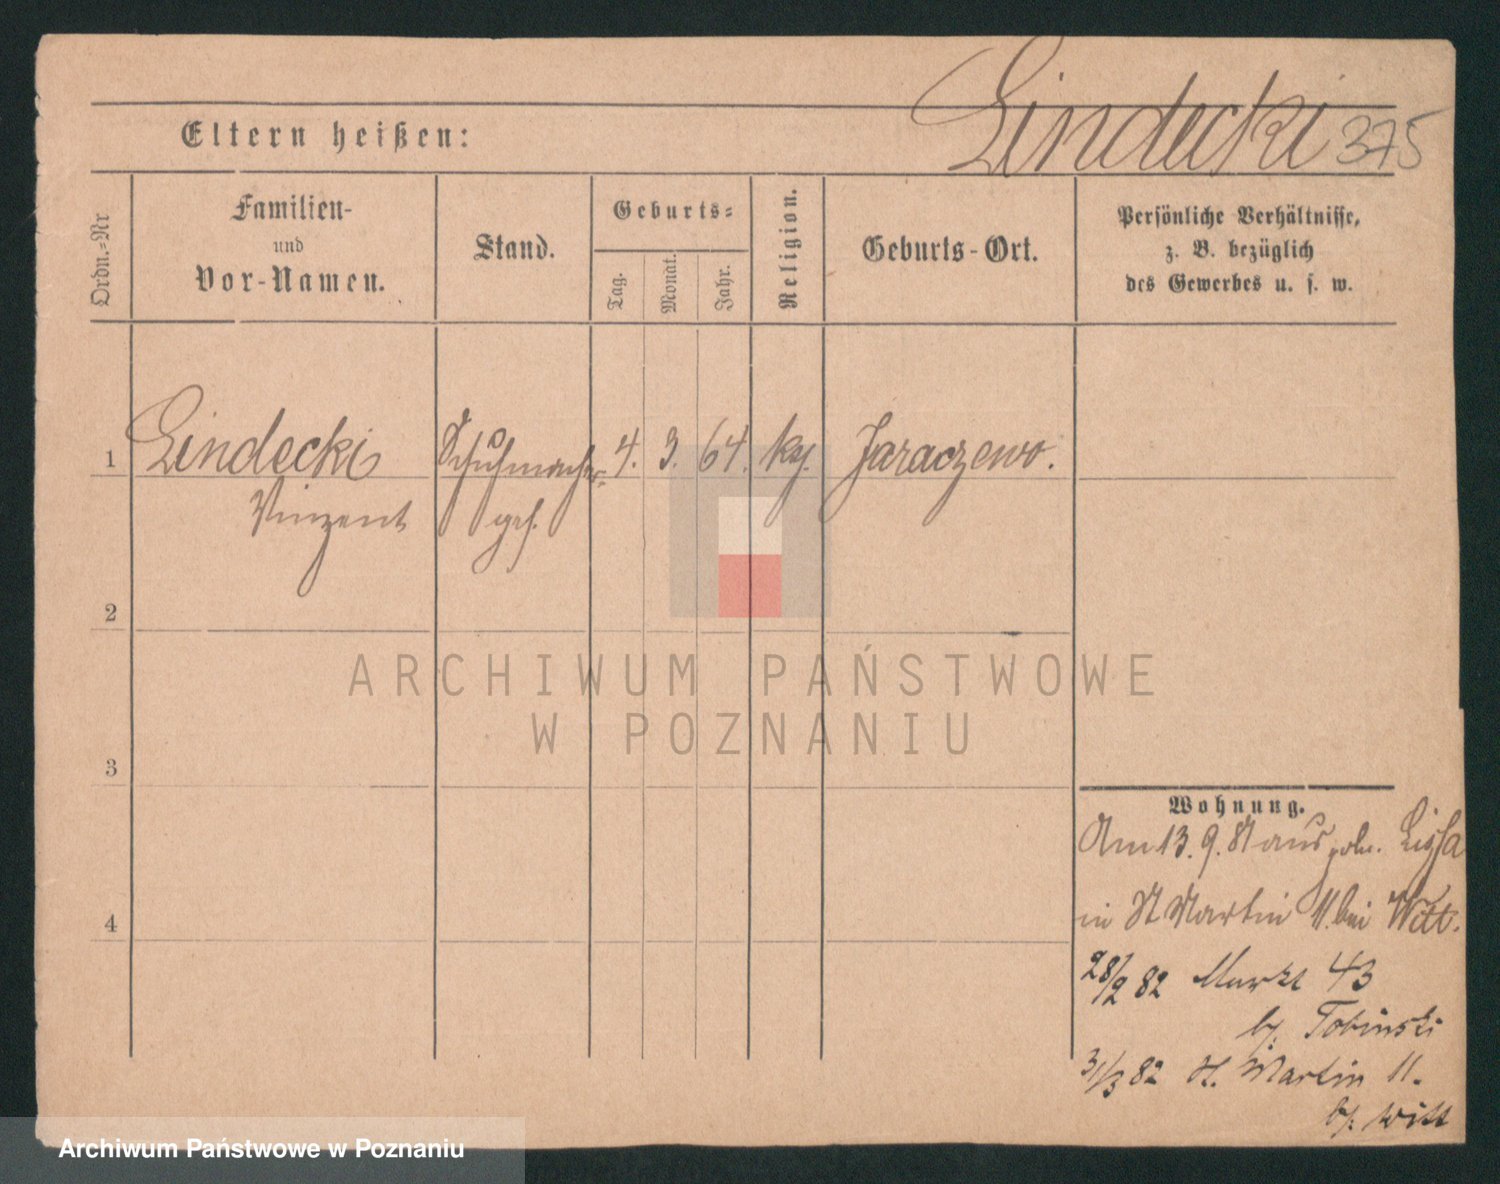 Lindecki 375
Eltern heißen:
Ordn.-Nr
Familien-
und
Vor-Namen.
Stand.
Geburts-
Tag.
Monat.
Jahr.
Religion.
Geburts-Ort.
Persönliche Verhältnisse,
z. B. bezüglich
des Gewerbes u. s. w.
1 Lindecki Schuhmacher- 4. 3. 64. Jaraczewo.
Vinzent ges.
2
3
4
ARCHIWUM PAŃSTWOWE
W POZNANIU
Wohnung.
Am 13. 9. 81 aus poln. Lissa
in St Martin 11. bei Witt.
28/2 82 Markt 43
b/. Tobinski
31/3 82 St. Martin 11.
b/. Witt
Archiwum Państwowe w Poznaniu